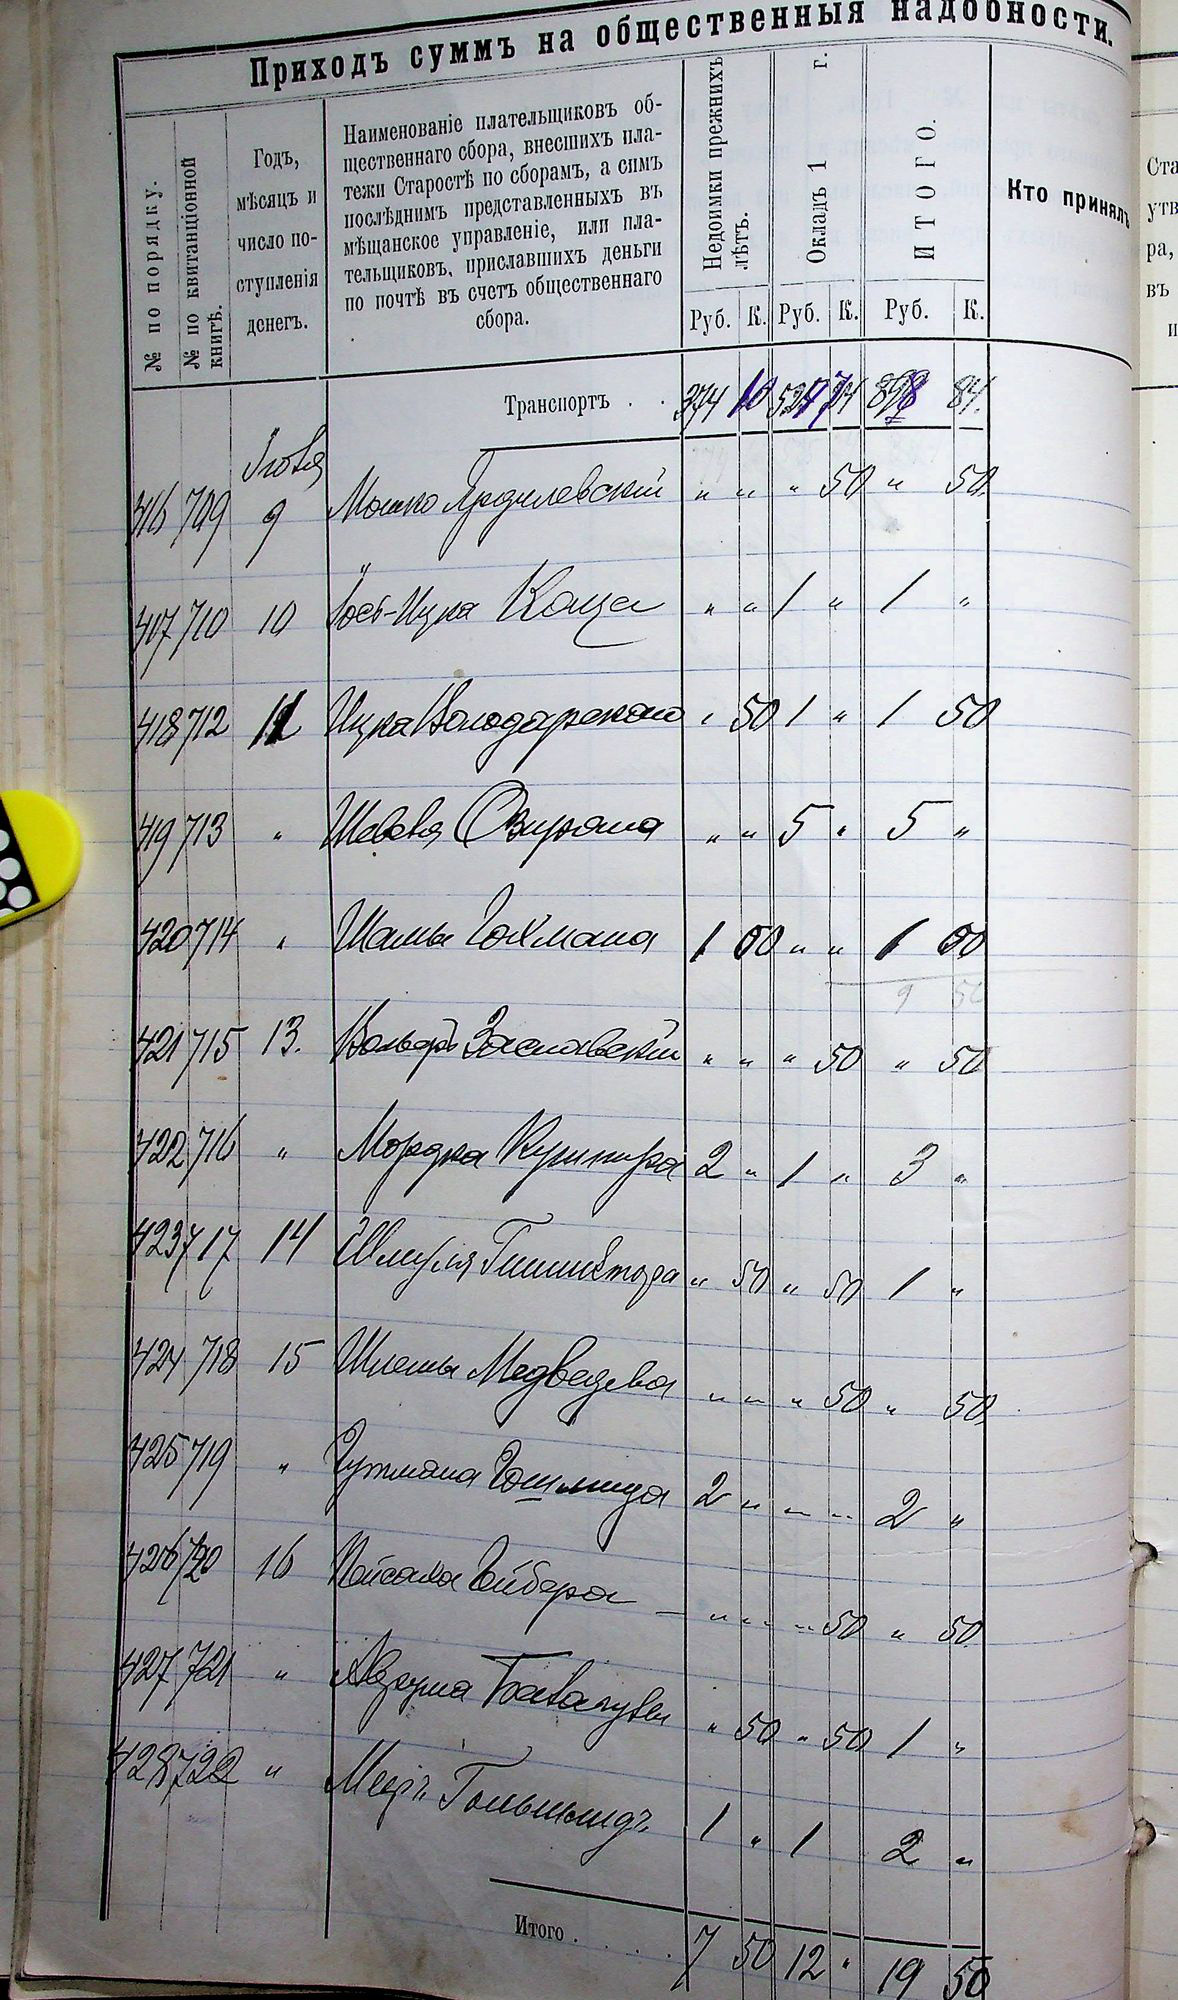 Приходъ суммъ на общественныя надобности.
№ по порядку.
№ по квитанціонной книгѣ.
Годъ,
мѣсяцъ и
число по-
ступленія
денегъ.
Наименованіе плательщиковъ об-
щественнаго сбора, внесшихъ пла-
тежи Старостѣ по сборамъ, а симъ
послѣднимъ представленныхъ въ
мѣщанское управленіе, или пла-
тельщиковъ, приславшихъ деньги
по почтѣ въ счетъ общественнаго
сбора.
Недоимки прежнихъ лѣтъ.
Окладъ 1 г.
ИТОГО.
Кто принялъ
Руб. К. Руб. К. Руб. К.
Транспортъ . . 374 10 74 898 84.
Іюня
416 709 9 Мошко " " " 50 " 50.
417 710 10 Іось-Ицка Коца " " 1 " 1 "
418 712 11 Ицка Володарскаго " 50 1 " 1 50
419 713 " Шевеля Свирана " " 5 " 5 "
420 714 " Шамы Гохмана 1 50 " " 1 50
9 50
421 715 13. Вольфъ Заславскій " " " 50 " 50
422 716 " Мордка Кушнира 2 " 1 " 3 "
423 717 14 Шмуля " 50 " 50 1 "
424 718 15 Шлемы Медведева " " " 50 " 50
425 719 " Гутмана 2 " " " 2 "
426 720 16 Пейсаха " " " 50 " 50
427 721 " " 50 " 50 1 "
428 722 " Мееръ 1 " 1 2 "
Итого . . . . . 7 50 12 " 19 50
Ста
утв
ра,
въ